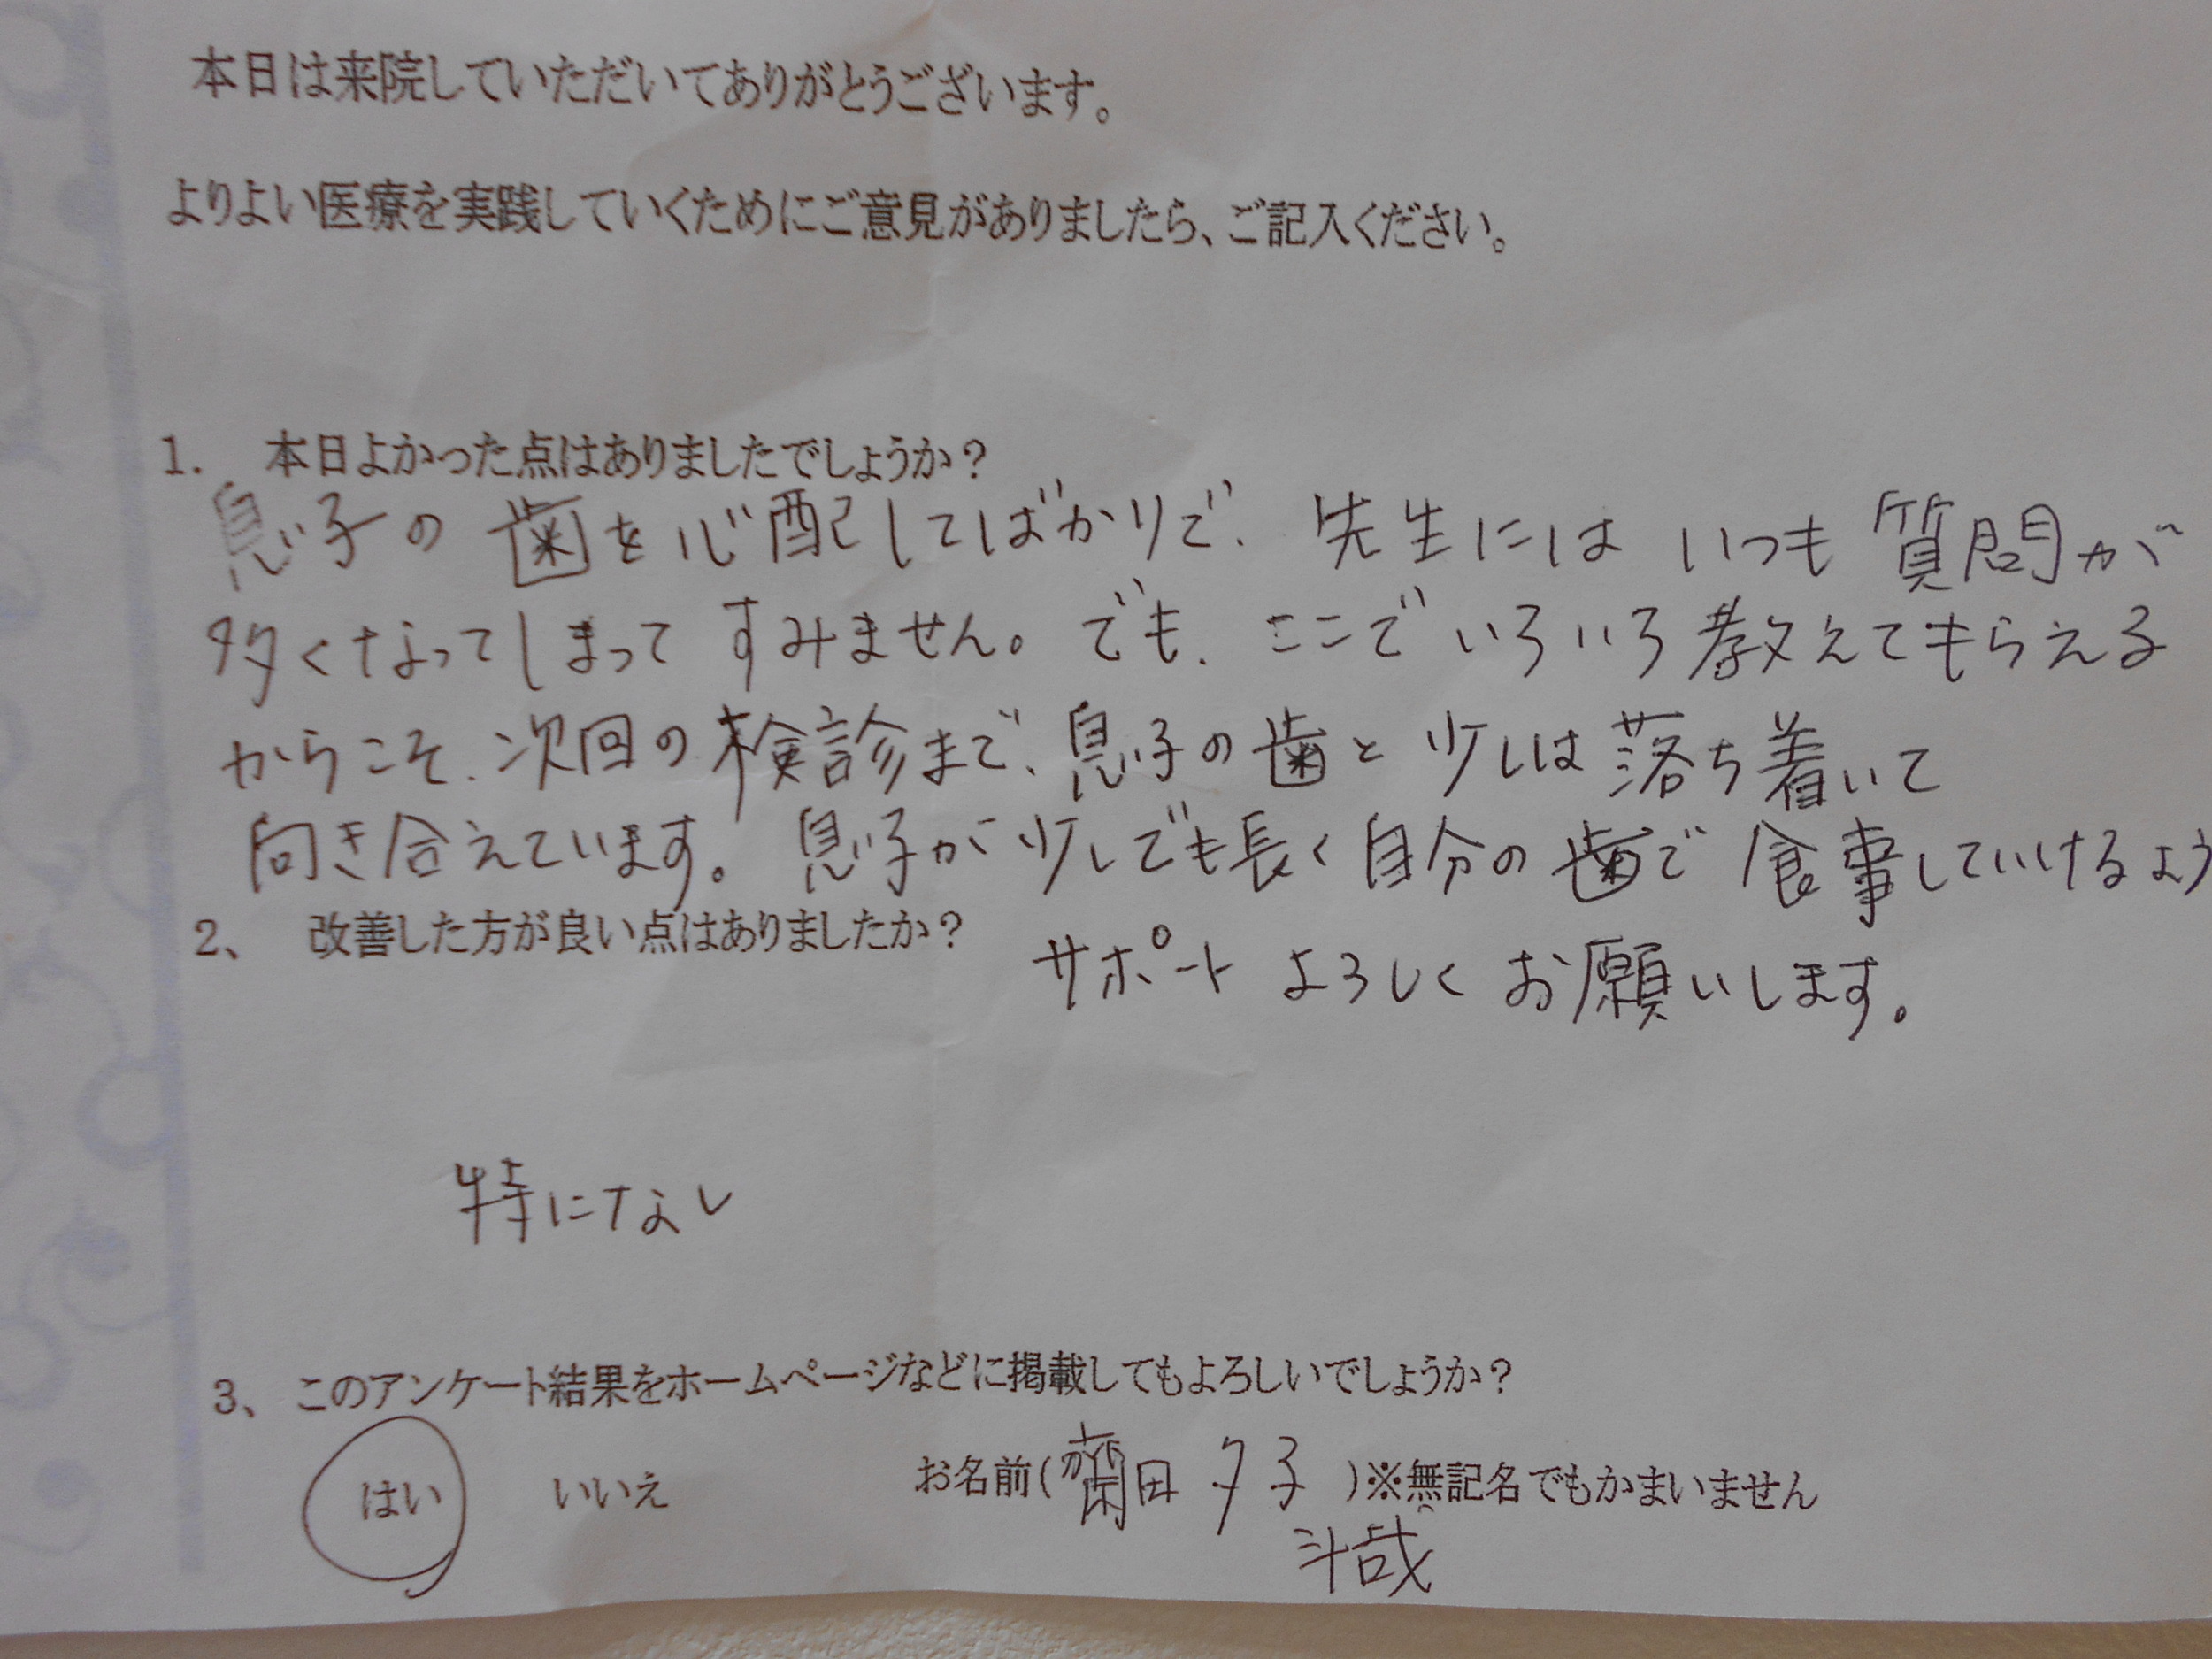 本日は来院していただいてありがとうございます。
よりよい医療を実践していくためにご意見がありましたら、ご記入ください。
1. 本日よかった点はありましたでしょうか?
息子の歯を心配してばかりで、先生にはいつも質問が
多くなってしまってすみません。でも、ここでいろいろ教えてもらえる
からこそ、次回の検診まで、息子の歯と少しは落ち着いて
向き合えています。息子が少しでも長く自分の歯で食事していけるよう
サポートよろしくお願いします。
2、 改善した方が良い点はありましたか?
特になし
3、このアンケート結果をホームページなどに掲載してもよろしいでしょうか?
はい いいえ お名前(齋田 夕子 )※無記名でもかまいません
斗哉